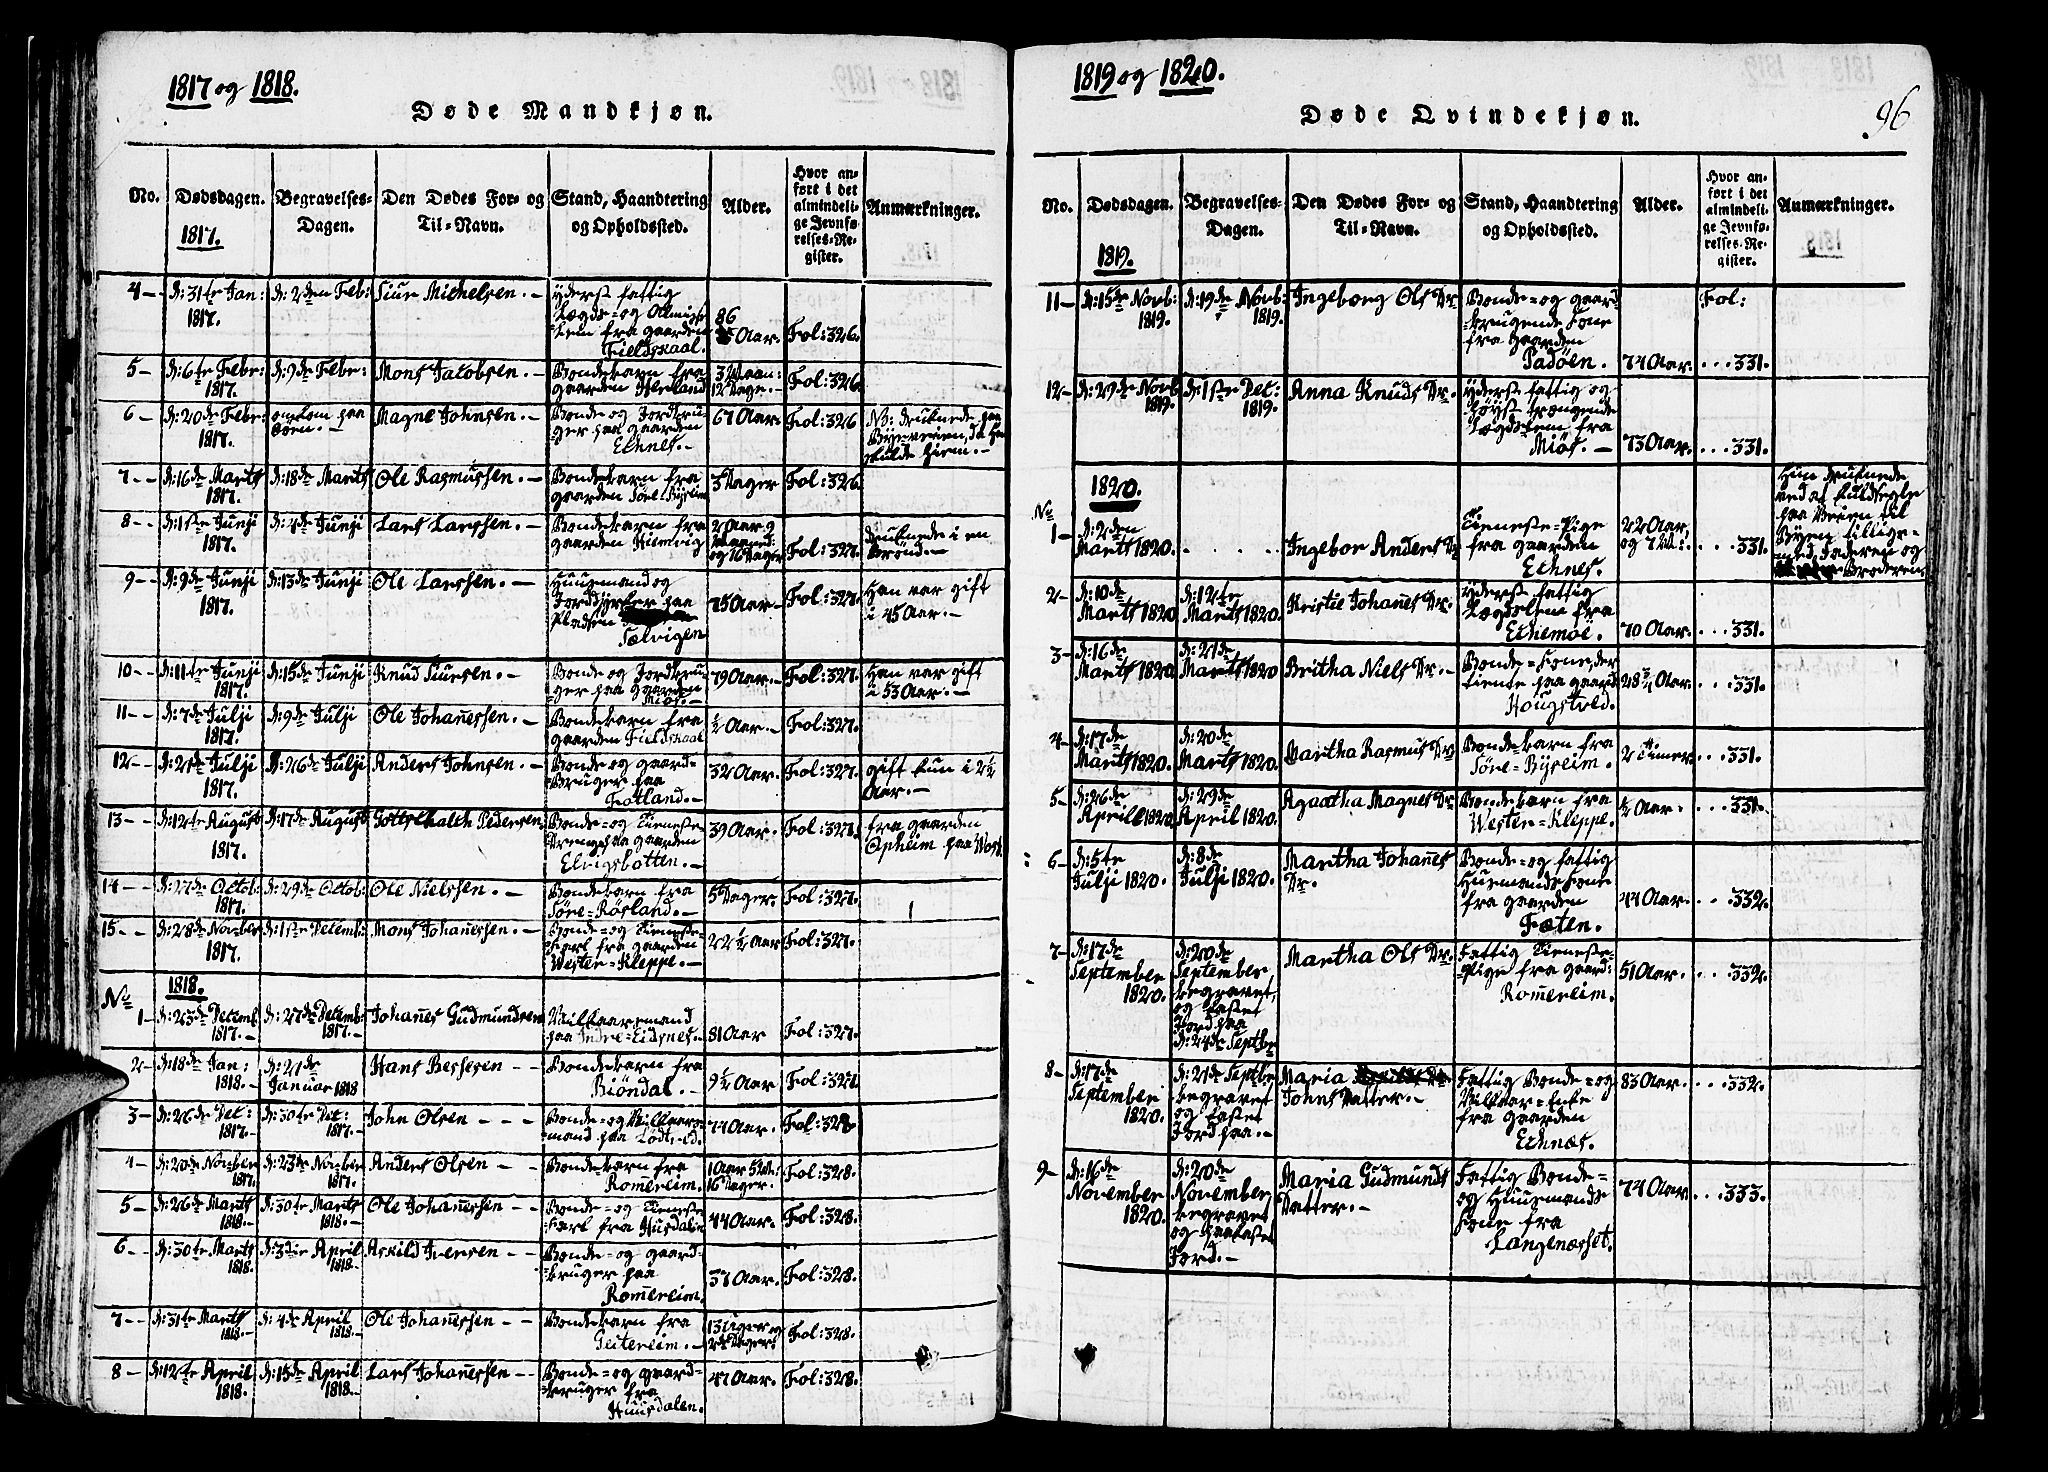 1817 og 1818.
Døde Mandkjøn.
No.
Dødsdagen.
1817.
Begravelses-
Dagen.
Den Dødes For- og
Til-Navn.
Stand, Haandtering
og Opholdssted.
Alder.
Hvor an-
ført i det
almindeli-
ge Jevnfø-
relses-Re-
gister.
Anmærkninger.
4 - d: 31te Jan: 1817. d: 2den Feb: Siur Michelsen. - yderst fattig
Lægds- og Almisse
Lem fra gaarden
Fieldskaal. 86 Aar. Fol: 326.
5 - d: 6te Febr: 1817. d: 9de Febr: Mons Jacobsen. - Bondebarn fra
gaarden Herland 3 Maan:
12 Dage. Fol: 326
6 - d: 20de Febr: 1817. omkom paa
Søen. - Magne Johnsen. - Bonde- og Jordbru-
ger paa gaarden
Echnes. - 67 Aar. Fol: 326 Nb: druknede paa
Byeveien, da han
skulde hiem. -
7 - - d: 16de Marts 1817. d: 18de Marts Ole Rasmussen. - Bondebarn fra
gaarden Søre-Byreim 3 Dager Fol: 326.
8 - - d: 1ste Junji 1817. d: 4de Junji Lars Larssen. - Bondebarn fra
gaarden Hiemvig 2 Aar 9
Maaned:
og 16 Dager Fol: 327. druknede i en
Brønd. -
9 - - d: 9de Junji 1817. d: 13de Junji Ole Larssen. - Huusmand og
Jorddyrker paa
Pladsen
Sælvigen 75 Aar - Fol: 327. Han var gift
i 45 Aar. -
10 - - d: 11te Junji 1817. d: 15de Junji Knud Siursen. - Bonde- og Jordbru-
ger paa gaarden
Miøs. - 79 Aar. - Fol: 327. Han var gift
i 53 Aar. -
11 - - d: 7de Julji 1817. d: 9de Julji Ole Johan̄essen. - Bondebarn fra
gaarden Fieldskaal ½ Aar. - Fol: 327.
12 - d: 21de Julji 1817. d: 26de Julji Anders Johnsen. - Bonde- og gaard-
Bruger paa
Fotland. - 32 Aar. Fol: 327. gift kun i 2½
Aar. -
13 - - d: 12te August 1817. d: 17de August Gottschalch Pedersen Bonde- og Tieneste
Dreng paa gaarden
Elvigsbotten. - 39 Aar. Fol: 327. fra gaarden
Opheim paa Voss.
14 - - d: 27de Octob: 1817. d: 29de Octob: Ole Nielssen. - Bondebarn fra
Søre-Røsland. - 5 Dager. Fol: 327.
15 - - d: 28de November 1817. d: 1ste Decemb: Mons Johan̄essen. - Bonde- og Tieneste-
Karl fra gaarden
Wester-Kleppe. - 22½ Aar Fol: 327.
No 1818.
1 - d: 23de Decemb 1817. - d: 27de Decemb: 1817. - Johan̄es Gudmundsen Vilkaarsmand
paa Indre-Eidsnes. - 81 Aar Fol: 327.
2 - d: 18de Jan: 1818. - d: 21de
Januar 1818 Hans Bessesen - - Bondebarn fra
Biöndal. - 9½ Aar Fol: 327
3 - d: 26de Dec: 1817. - d: 30te Dec: 1817. - John Olsen - - - Bonde- og Vilkaars-
mand paa Lødtved. 77 Aar. Fol: 328
4 - d: 20de November 1817. d: 23de November 1817. - Anders Olsen - - Bondebarn fra
Rom̄ereim. 1 Aar 5 M:
16 Dager. Fol: 328.
5 - d: 26de Marts 1818. - d: 30te Marts 1818. - Ole Johan̄essen - - Bonde- og Tieneste
Karl fra Husdalen 44 Aar. Fol: 328.
6 - - d: 30te Marts 1818. d: 3die April 1818. - Askild Iversen - - Bonde- og gaard-
bruger paa
Rom̄ereim. 37 Aar. Fol: 328.
7 - - d: 31te Marts 1818. - d: 4de April 1818. - Ole Johan̄essen - - Bondebarn fra
Geitereim. - 13 Uger og
2 Dager. Fol: 328.
8 - d: 12te April 1818. d: 15de April 1818. - Lars Johan̄essen - - Bonde- og gaard-
bruger fra
Huusdalen. 47 Aar. Fol: 328.
1819 og 1820.
Døde Qvindekjøn.
96
No.
Dødsdagen.
1819.
Begravelses-
Dagen.
Den Dødes For- og
Til-Navn.
Stand, Haandtering
og Opholdssted.
Alder.
Hvor an-
ført i det
almindeli-
ge Jevnfø-
relses-Re-
gister.
Anmærkninger.
11 - d: 15de Novb: 1819. d: 19de Novb: 1819. Ingeborg Ols Dr. Bonde- og gaard-
brugende Kone
fra Gaarden
Padöen. 74 Aar. Fol:
... 331.
12 - d: 29de Novb 1819. d: 1ste Dec: 1819. Anna Knuds Dr. yderst fattig og
høyst trængende
Lægdslem fra
Miøs. - 73 Aar. ... 331.
No 1820.
1 - d: 2den
Marts 1820. . . . Ingebor Anders Dr Tieneste-Pige
fra gaarden
Echnes. 22 Aar
og 7 M: ... 331. Hun druknede
ved at kuldsegle
paa Veien til
Byen tillige-
med Faderen og
Broderen
2 - d: 10de
Marts 1820 d: 12te
Marts 1820. Kristie Johan̄es Dr. yderst fattig
Lægdslem fra
Echemoe. 70 Aar. ... 331.
3 - d: 16de
Marts 1820 d: 21de
Marts 1820 Britha Niels Dr. - Bonde-Kone, der
tiente paa gaard
Hougstvед. 28¾ Aar. ... 331.
4 - d: 17de
Marts 1820. d: 20de
Marts 1820. Martha Rasmus Dr Bondebarn fra
Søre-Byreim. 2 Timer ... 331.
5 - d: 26de
April 1820 d: 29de
April 1820. Agaatha Magnes Dr Bondebarn fra
Wester-Kleppe. ½ Aar. ... 331.
6 - d: 5te
Julji 1820. d: 8de
Julji 1820. Martha Johan̄es
Dr. Bonde- og fattig
Huusmands Kone
fra gaarden
Fæten. 44 Aar. ... 332.
7 - d: 17de
September
1820. d: 20de
September
begravet,
og kastet
Jord paa
d: 24de Septbr Martha Ols Dr. Fattig Tieneste-
Pige fra gaard:
Rom̄ereim. 51 Aar. ... 332.
8 - d: 17de
September
1820. d: 21de Septbr
begravet
og kastet
Jord paa. - Maria
Johns Datter. - Fattig Bonde- og
Vilkaar-Enke
fra gaarden
Echnæs. 83 Aar. ... 332.
9 - d: 16de
November
1820. d: 20de
November
begravet
og paakastet
Jord. - Maria Gudmunds
Datter. - Fattig Bonde-
og Huusmands
Kone fra
Langenæsset. 74 Aar. ... 333.